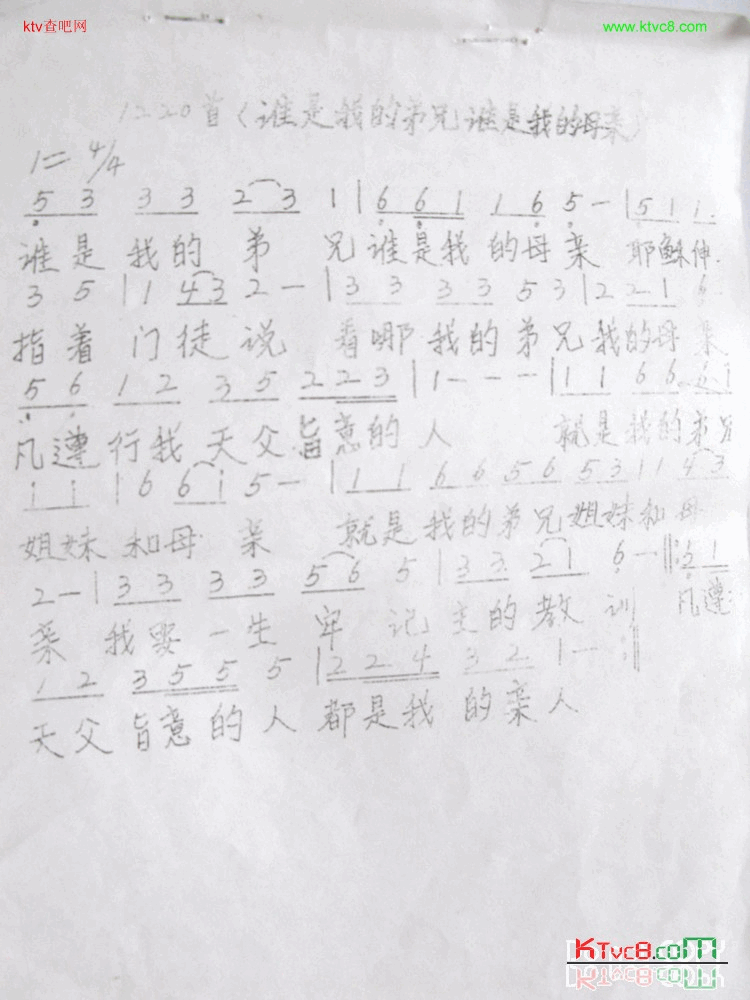 ktv查吧网
www.ktvc8.com
1220首(谁是我的弟兄谁是我的母亲)
1= 4/4
5 3 3 3 2 3 1 | 6 6 1 1 6 5 - | 5 1 1
谁是我的弟 兄谁是我的母亲 耶稣伸
3 5 | 1 4 3 2 - | 3 3 3 3 5 3 | 2 2 1 6
指着门徒说 看哪我的弟兄我的母亲
5 6 1 2 3 5 2 2 3 | 1 - - - | 1 1 6 6 6 i
凡遵行我天父旨意的人 就是我的弟兄
i i | 6 6 i 5 - | 1 1 6 6 5 6 5 3 1 1 4 3
姐妹和母亲 就是我的弟兄姐妹和母
2 - | 3 3 3 3 5 6 5 | 3 3 2 1 6 - ‖: 2 1
亲 我要一生牢记主的教训 凡遵
1 2 3 5 5 5 | 2 2 4 3 2 1 - :‖
天父旨意的人都是我的亲人
KTvc8.com